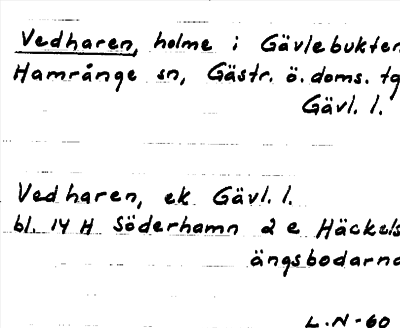 Vedharen, holme i Gävlebukten
Hamrånge sn, Gästr. ö. doms. tg
Gävl. l.
Vedharen, ek Gävl. l.
bl. 14 H Söderhamn 2 e Häckels
ängsbodarna
L.N-60